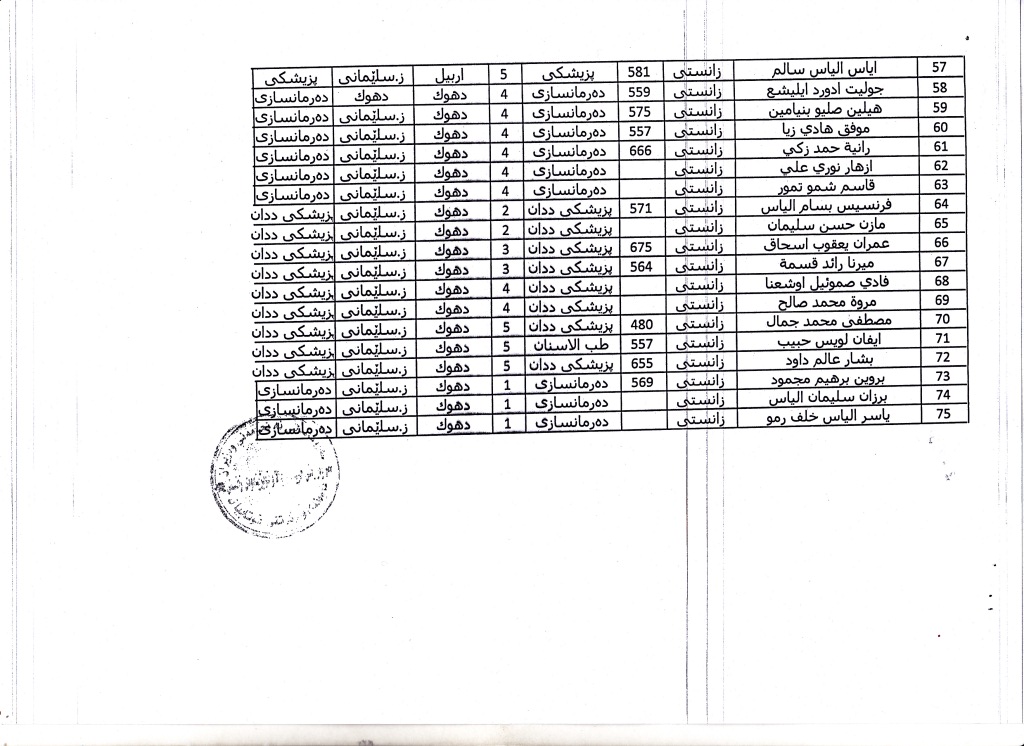 57 اياس الياس سالم زانستى 581 پزیشکی 5 اربيل ز.سلێمانى پزیشکی
58 جوليت ادورد ايليشع زانستى 559 دەرمانسازى 4 دهوك دهوك دەرمانسازى
59 هيلين صليو بنيامين زانستى 575 دەرمانسازى 4 دهوك ز.سلێمانى دەرمانسازى
60 موفق هادي زيا زانستى 557 دەرمانسازى 4 دهوك ز.سلێمانى دەرمانسازى
61 رانية حمد زكي زانستى 666 دەرمانسازى 4 دهوك ز.سلێمانى دەرمانسازى
62 ازهار نوري علي زانستى دەرمانسازى 4 دهوك ز.سلێمانى دەرمانسازى
63 قاسم شمو تمور زانستى دەرمانسازى 4 دهوك ز.سلێمانى دەرمانسازى
64 فرنسيس بسام الياس زانستى 571 پزیشکی ددان 2 دهوك ز.سلێمانى پزیشکی ددان
65 مازن حسن سليمان زانستى پزیشکی ددان 2 دهوك ز.سلێمانى پزیشکی ددان
66 عمران يعقوب اسحاق زانستى 675 پزیشکی ددان 3 دهوك ز.سلێمانى پزیشکی ددان
67 ميرنا رائد قسمة زانستى 564 پزیشکی ددان 3 دهوك ز.سلێمانى پزیشکی ددان
68 فادي صموئيل اوشعنا زانستى پزیشکی ددان 4 دهوك ز.سلێمانى پزیشکی ددان
69 مروة محمد صالح زانستى پزیشکی ددان 4 دهوك ز.سلێمانى پزیشکی ددان
70 مصطفى محمد جمال زانستى 480 پزیشکی ددان 5 دهوك ز.سلێمانى پزیشکی ددان
71 ايفان لويس حبيب زانستى 557 طب الاسنان 5 دهوك ز.سلێمانى پزیشکی ددان
72 بشار عالم داود زانستى 655 پزیشکی ددان 5 دهوك ز.سلێمانى پزیشکی ددان
73 بروين برهيم مجمود زانستى 569 دەرمانسازى 1 دهوك ز.سلێمانى دەرمانسازى
74 برزان سليمان الياس زانستى دەرمانسازى 1 دهوك ز.سلێمانى دەرمانسازى
75 ياسر الياس خلف رمو زانستى دەرمانسازى 1 دهوك ز.سلێمانى دەرمانسازى